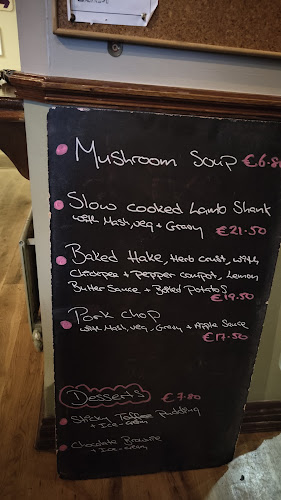 Mushroom Soup €6.80
Slow cooked Lamb Shank
with Mash, veg + Gravy
€21.50
Baked Hake, Herb crust, with
Chickpea + pepper compot, Lemon
Butter Sauce + Baked Potato's
€19.50
Pork Chop
with Mash, veg, Gravy + Apple Sauce
€17.50
Desserts €7.80
Sticky Toffee Pudding
+ Ice-cream
Chocolate Brownie
+ Ice-cream